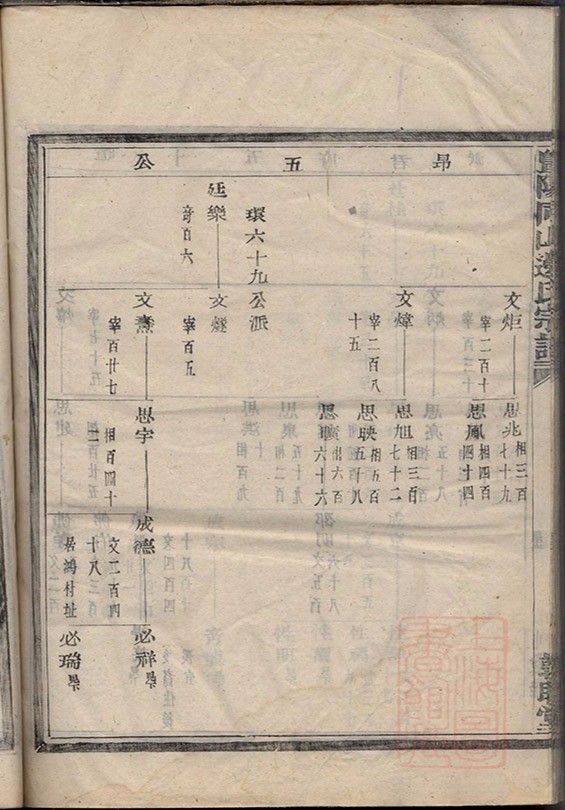 暨陽同山邊氏宗譜
敦睦堂
昂五公
文炬
宰二百十
思兆
相三百
七十九
思鳳
相四百
四十四
文煒
宰二百八
十五
思旭
相三百
七十二
思映
相五百
五十八
思曠
相六百
六十六
環六十九公派
廷樂
奇百六
文燧
宰百五
文燾
宰百廿七
思宇
相百四十
二
成德
文二百四
十八
居鴻村址
必祥
必瑞